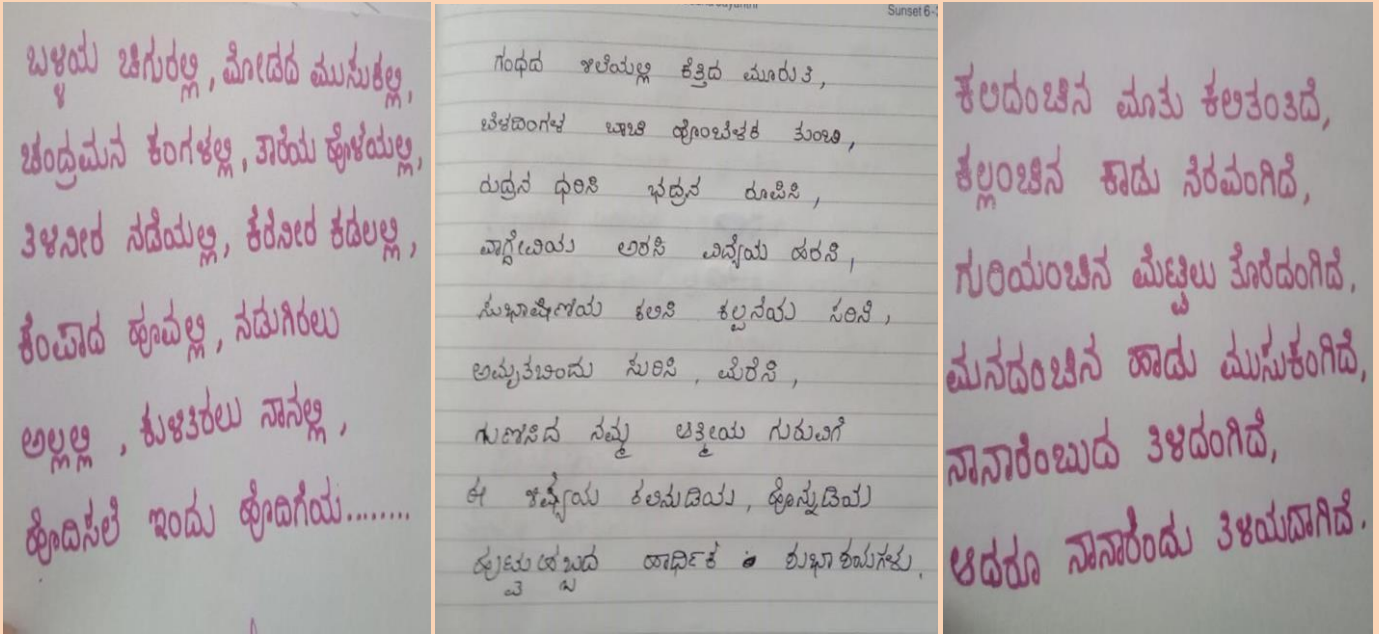 ಬಳ್ಳಿಯ ಚಿಗುರಲ್ಲಿ, ಮೋಡದ ಮುಸುಕಲ್ಲಿ,
ಚಂದ್ರಮನ ಕಂಗಳಲ್ಲಿ, ತಾರೆಯ ಹೊಳೆಯಲ್ಲಿ,
ತಿಳಿನೀರ ನಡೆಯಲ್ಲಿ, ಕೆರೆನೀರ ಕಡಲಲ್ಲಿ,
ಕೆಂಪಾದ ಹೂವಲ್ಲಿ, ನಡುಗಿರಲು
ಅಲ್ಲಲ್ಲಿ, ಕುಳಿತಿರಲು ನಾನಲ್ಲಿ,
ಹೊದಿಸಲೆ ಇಂದು ಹೊದಿಗೆಯ........
Sunset 6-
ಗಂಧದ ಶಿಲೆಯಲ್ಲಿ ಕೆತ್ತಿದ ಮೂರುತಿ,
ಬೆಳದಿಂಗಳ ಬಾಚಿ ಹೊಂಬೆಳಕ ತುಂಬಿ,
ರುದ್ರನ ಧರಿಸಿ ಭದ್ರನ ರೂಪಿಸಿ,
ವಾಗ್ದೇವಿಯ ಅರಸಿ ವಿದ್ಯೆಯ ಹರಸಿ,
ಸುಭಾಷಿಣಿಯ ಕಲಿಸಿ ಕಲ್ಪನೆಯ ಸರಿಸಿ,
ಅಮೃತಬಿಂದು ಸುರಿಸಿ, ಮೆರೆಸಿ,
ಗುಣಿಸಿದ ನಮ್ಮ ಆತ್ಮೀಯ ಗುರುವಿಗೆ
ಈ ಶಿಷ್ಯೆಯ ಕಲಿನುಡಿಯ, ಹೊನ್ನುಡಿಯ
ಹುಟ್ಟುಹಬ್ಬದ ಹಾರ್ಧಿಕ ಶುಭಾಶಯಗಳು.
ಕಲಿದಂಚಿನ ಮಾತು ಕಲಿತಂತಿದೆ,
ಕಲ್ಲಂಚಿನ ಕಾಡು ನೆರವಂಗಿದೆ,
ಗುರಿಯಂಚಿನ ಮೆಟ್ಟಿಲು ತೊರೆದಂಗಿದೆ,
ಮನದಂಚಿನ ಹಾಡು ಮುಸುಕಂಗಿದೆ,
ನಾನಾರೆಂಬುದ ತಿಳಿದಂಗಿದೆ,
ಆದರೂ ನಾನಾರೆಂದು ತಿಳಿಯದಾಗಿದೆ.